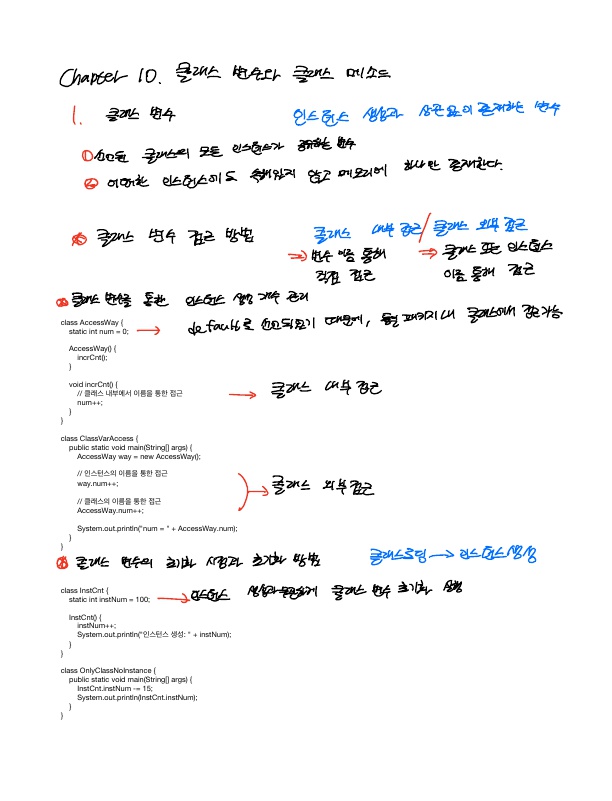 Chapter 10. 클래스 변수와 클래스 메소드
1. 클래스 변수
인스턴스 생성과 상관없이 존재하는 변수
① 선언된 클래스의 모든 인스턴스가 공유하는 변수
② 어떠한 인스턴스에도 속해있지 않고 메모리에 하나만 존재한다.
클래스 변수 접근 방법
클래스 내부 접근 / 클래스 외부 접근
→ 변수 이름 통해 직접 접근
→ 클래스 또는 인스턴스 이름 통해 접근
클래스 변수를 통한 인스턴스 생성 개수 관리
class AccessWay {
static int num = 0;
→ default로 선언되었기 때문에, 동일 패키지 내 클래스에서 접근 가능
AccessWay() {
incrCnt();
}
void incrCnt() {
// 클래스 내부에서 이름을 통한 접근
num++;
→ 클래스 내부 접근
}
}
class ClassVarAccess {
public static void main(String[] args) {
AccessWay way = new AccessWay();
// 인스턴스의 이름을 통한 접근
way.num++;
→ 클래스 외부 접근
// 클래스의 이름을 통한 접근
AccessWay.num++;
System.out.println("num = " + AccessWay.num);
}
}
클래스 변수의 초기화 시점과 초기화 방법
클래스 로딩 → 인스턴스 생성
class InstCnt {
static int instNum = 100;
→ 인스턴스 생성과 무관하게 클래스 변수 초기화 실행
InstCnt() {
instNum++;
System.out.println("인스턴스 생성: " + instNum);
}
}
class OnlyClassNoInstance {
public static void main(String[] args) {
InstCnt.instNum -= 15;
System.out.println(InstCnt.instNum);
}
}